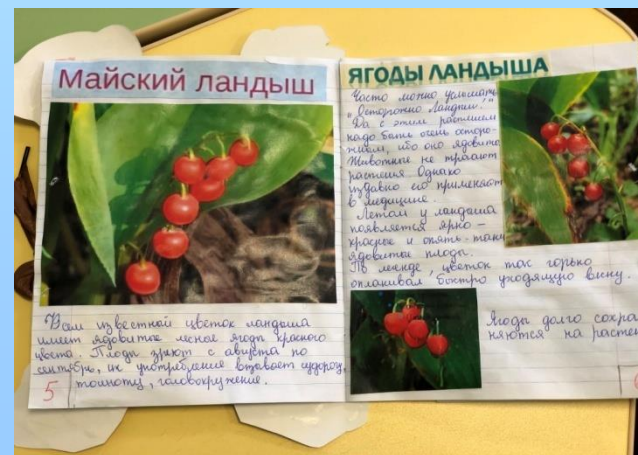 Майский ландыш
Вам известной цветок ландыша
имеет ядовитое лесное ягоды красного
цвета. Плоды зреют с августа по
сентябрь, их употребление взывает судорогу,
тошноту, головокружение.
5
ЯГОДЫ ЛАНДЫША
Часто можно услышать
„Осторожно Ландыш!"
Да с этим растением
надо быть очень осторо-
жным, ибо оно ядовито
Животные не трогают
растения. Однако
издавно его применяют
в медицине.
Летом у ландыша
появляется ярко –
красные и опять-таки
ядовитые плоды.
По легенде, цветок так горько
оплакивал быстро уходящую весну.
Ягоды долго сохра
няются на расте